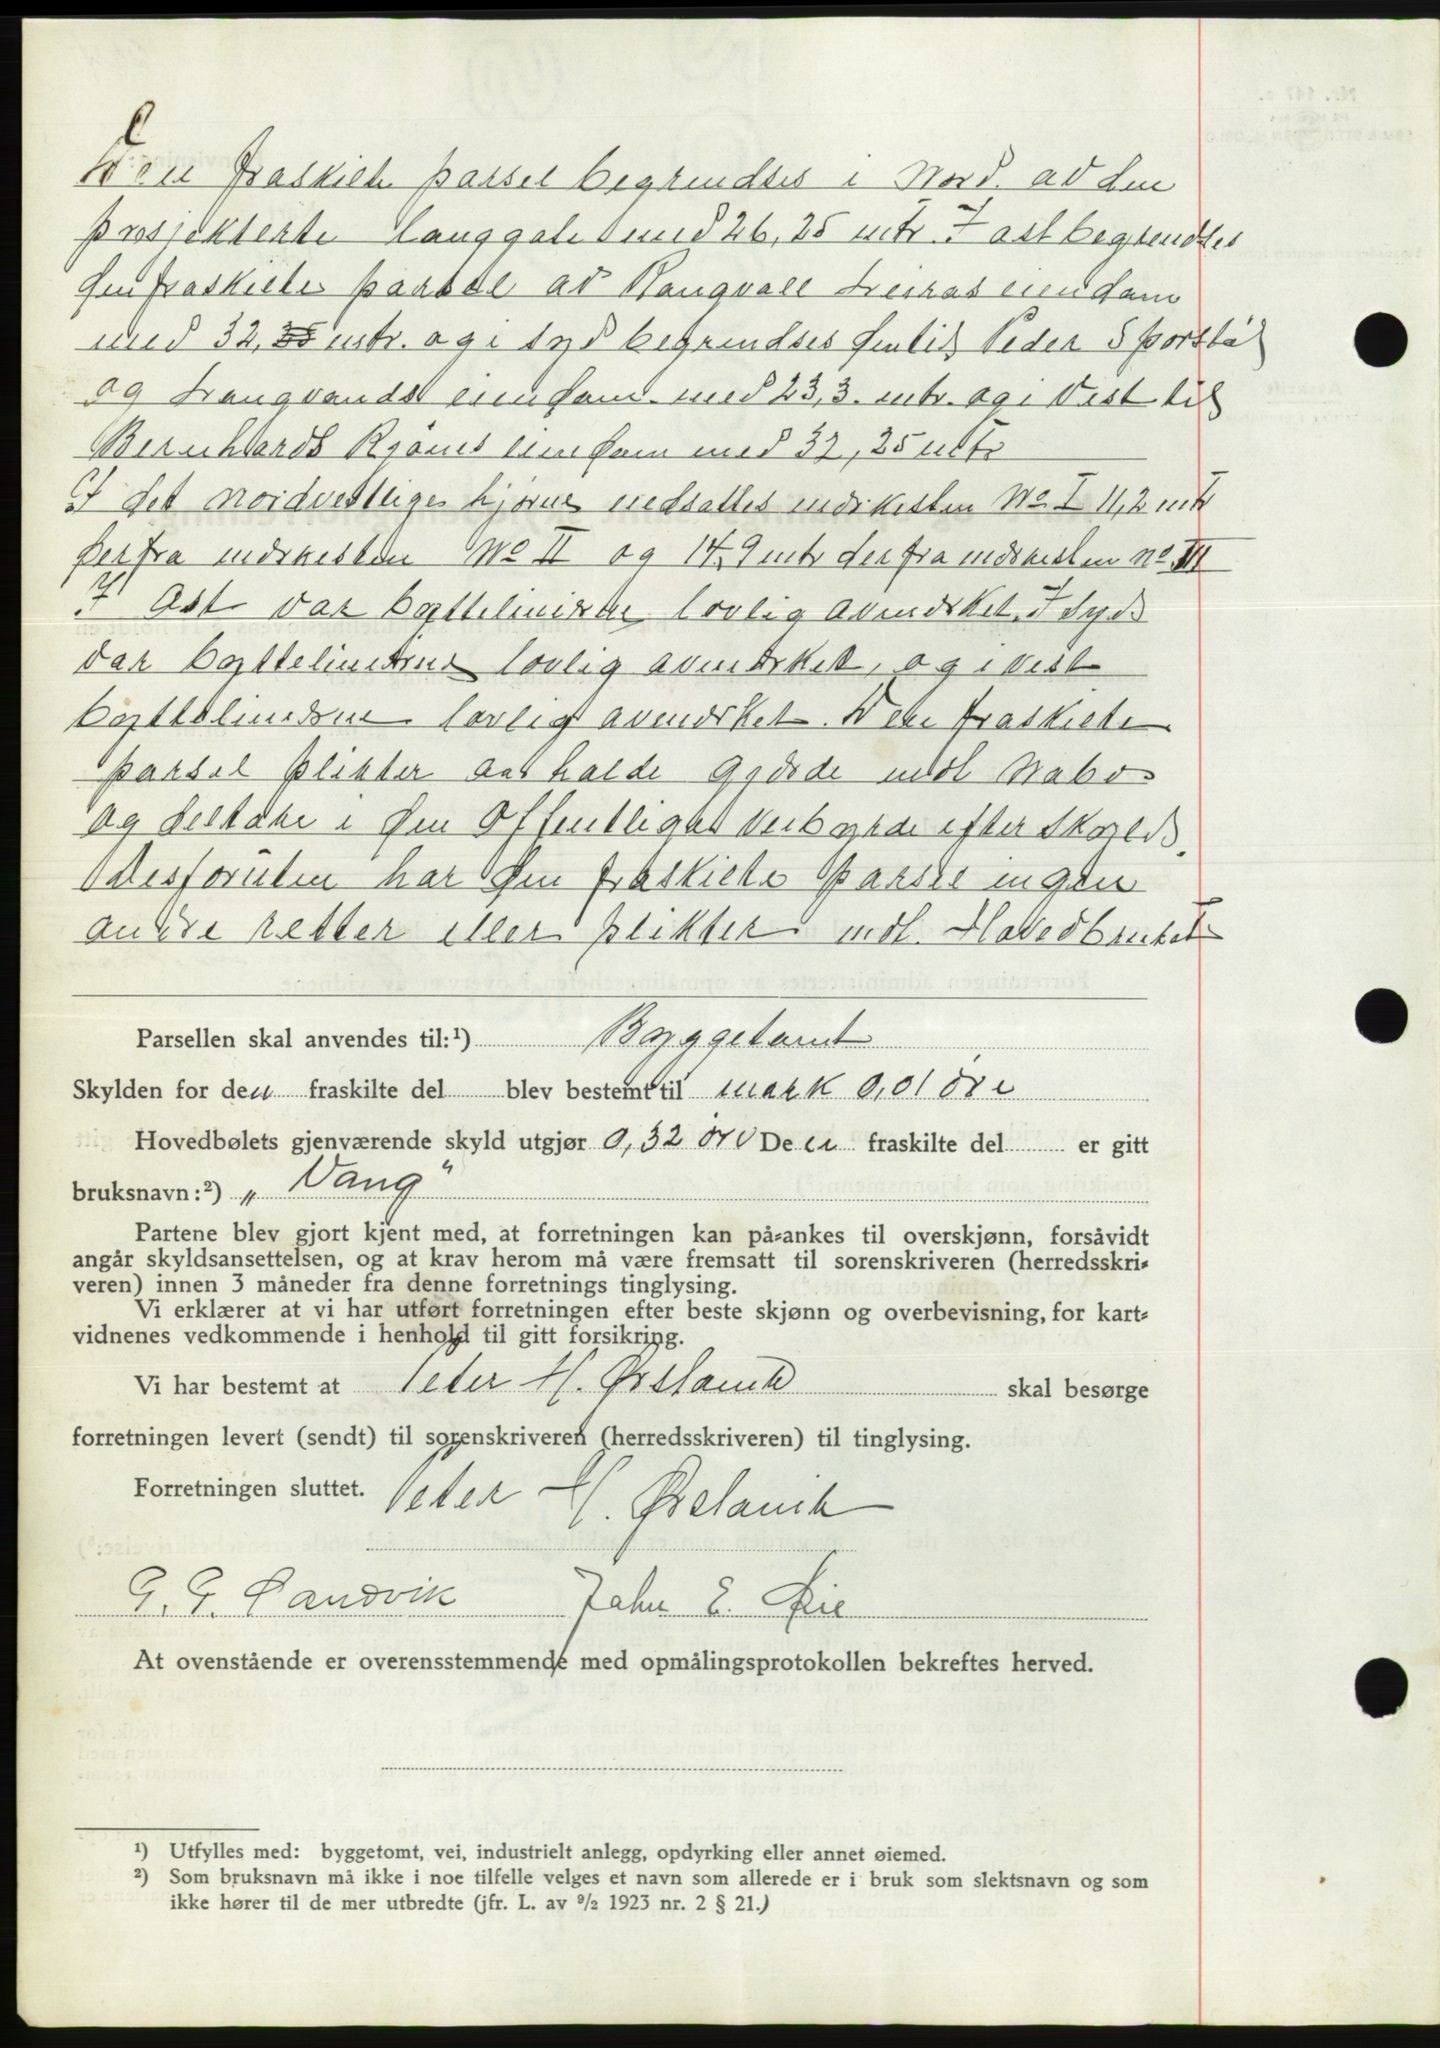 Den fraskielte parsel begrendses i Nord. av den
prosjekterte Langgate med 26,25 mtr. I ost begrendses
den fraskielte parsel av Rangvall Leiras eiendam
med 32, 35 mtr. og i syd begrendses den til Peder Sporstøl
og Langvands eiendam. med 23,3. mtr. og i Vest til
Bernhards Rjönes eiendam med 32,25 mtr
I det nordvestlige hjørne nedsattes merkesten No I 11,2 mtr
derfra merkesten No II og 14,9 mtr derfra merkesten no III
I Ost var byttelinierne lovlig avmerket. I Syd
var byttelinierne lovlig avmerket, og i vest
byttelinierne lovlig avmerket. Den fraskielte
parsel plikter aa halde gjerde mot Nabo
og deltake i den Offentliges Veibyrde efter Skyld.
Desforuten har den fraskielte Parsel ingen
andre retter eller plikter mot. Hovedbruket
Parsellen skal anvendes til:¹) Byggetomt
Skylden for den fraskilte del blev bestemt til mark 0,01 øre
Hovedbølets gjenværende skyld utgjør 0,32 øre Den fraskilte del er gitt
bruksnavn:²) „Vang“
Partene blev gjort kjent med, at forretningen kan på-ankes til overskjønn, forsåvidt
angår skyldsansettelsen, og at krav herom må være fremsatt til sorenskriveren (herredsskri-
veren) innen 3 måneder fra denne forretnings tinglysing.
Vi erklærer at vi har utført forretningen efter beste skjønn og overbevisning, for kart-
vidnenes vedkommende i henhold til gitt forsikring.
Vi har bestemt at Peter H. Ørslavik skal besørge
forretningen levert (sendt) til sorenskriveren (herredsskriveren) til tinglysing.
Forretningen sluttet. Peter H. Ørslavik
G. G. Sandvik John E. Øie
At ovenstående er overensstemmende med opmålingsprotokollen bekreftes herved.
¹) Utfylles med: byggetomt, vei, industrielt anlegg, opdyrking eller annet øiemed.
²) Som bruksnavn må ikke i noe tilfelle velges et navn som allerede er i bruk som slektsnavn og som
ikke hører til de mer utbredte (jfr. L. av ⁹/₂ 1923 nr. 2 § 21.)